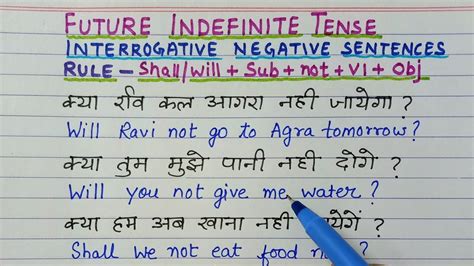 Future Indefinite Tense
Interrogative negative sentences
Rule – Shall/Will + Sub + not + V1 + Obj
क्या रवि कल आगरा नही जायेगा ?
Will Ravi not go to Agra tomorrow?
क्या तुम मुझे पानी नही दोगे ?
Will you not give me water ?
क्या हम अब खाना नही ?
Shall we not eat food ?